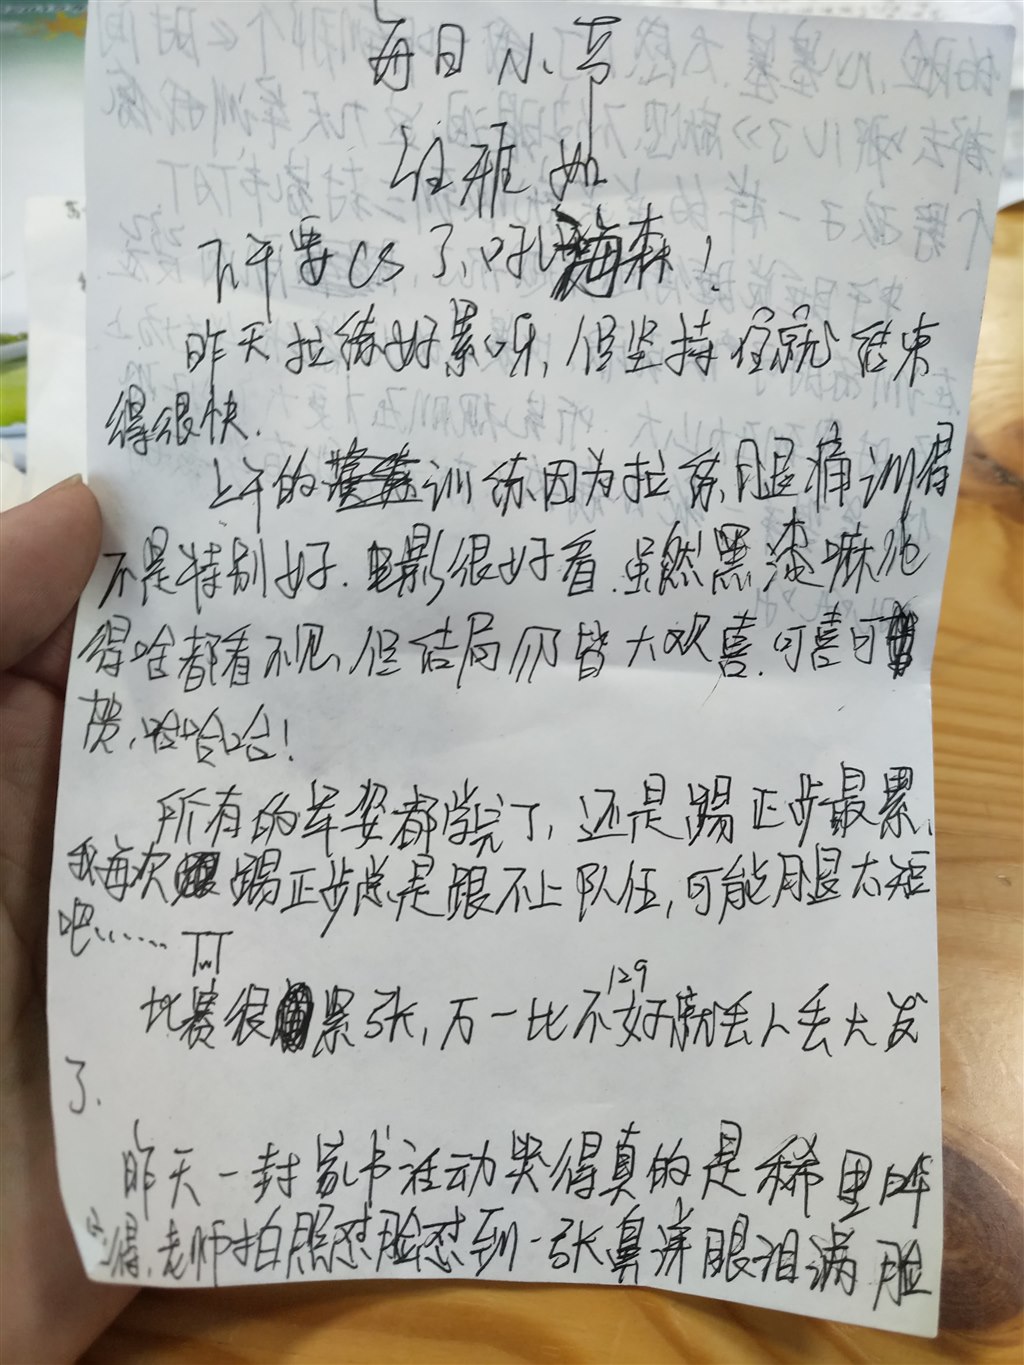 每日小节
任雅如
下午要CS了,吼海森!
昨天拉练好累呀,但坚持住就结束
得很快.
上午的训练因为拉练腿痛训得
不是特别好.电影很好看.虽然黑漆嘛兆
得啥都看不见,但结局仍皆大欢喜.可喜可
贺,哈哈哈!
所有的军姿都学完了,还是踢正步最累,
我每次踢正步总是跟不上队伍,可能腿太短
吧...... TwT
比赛很紧张,万一比不好就丢人丢大发
129
了.
昨天一封家书活动哭得真的是稀里哗
得,老师拍照怼脸怼到一张鼻涕眼泪满脸